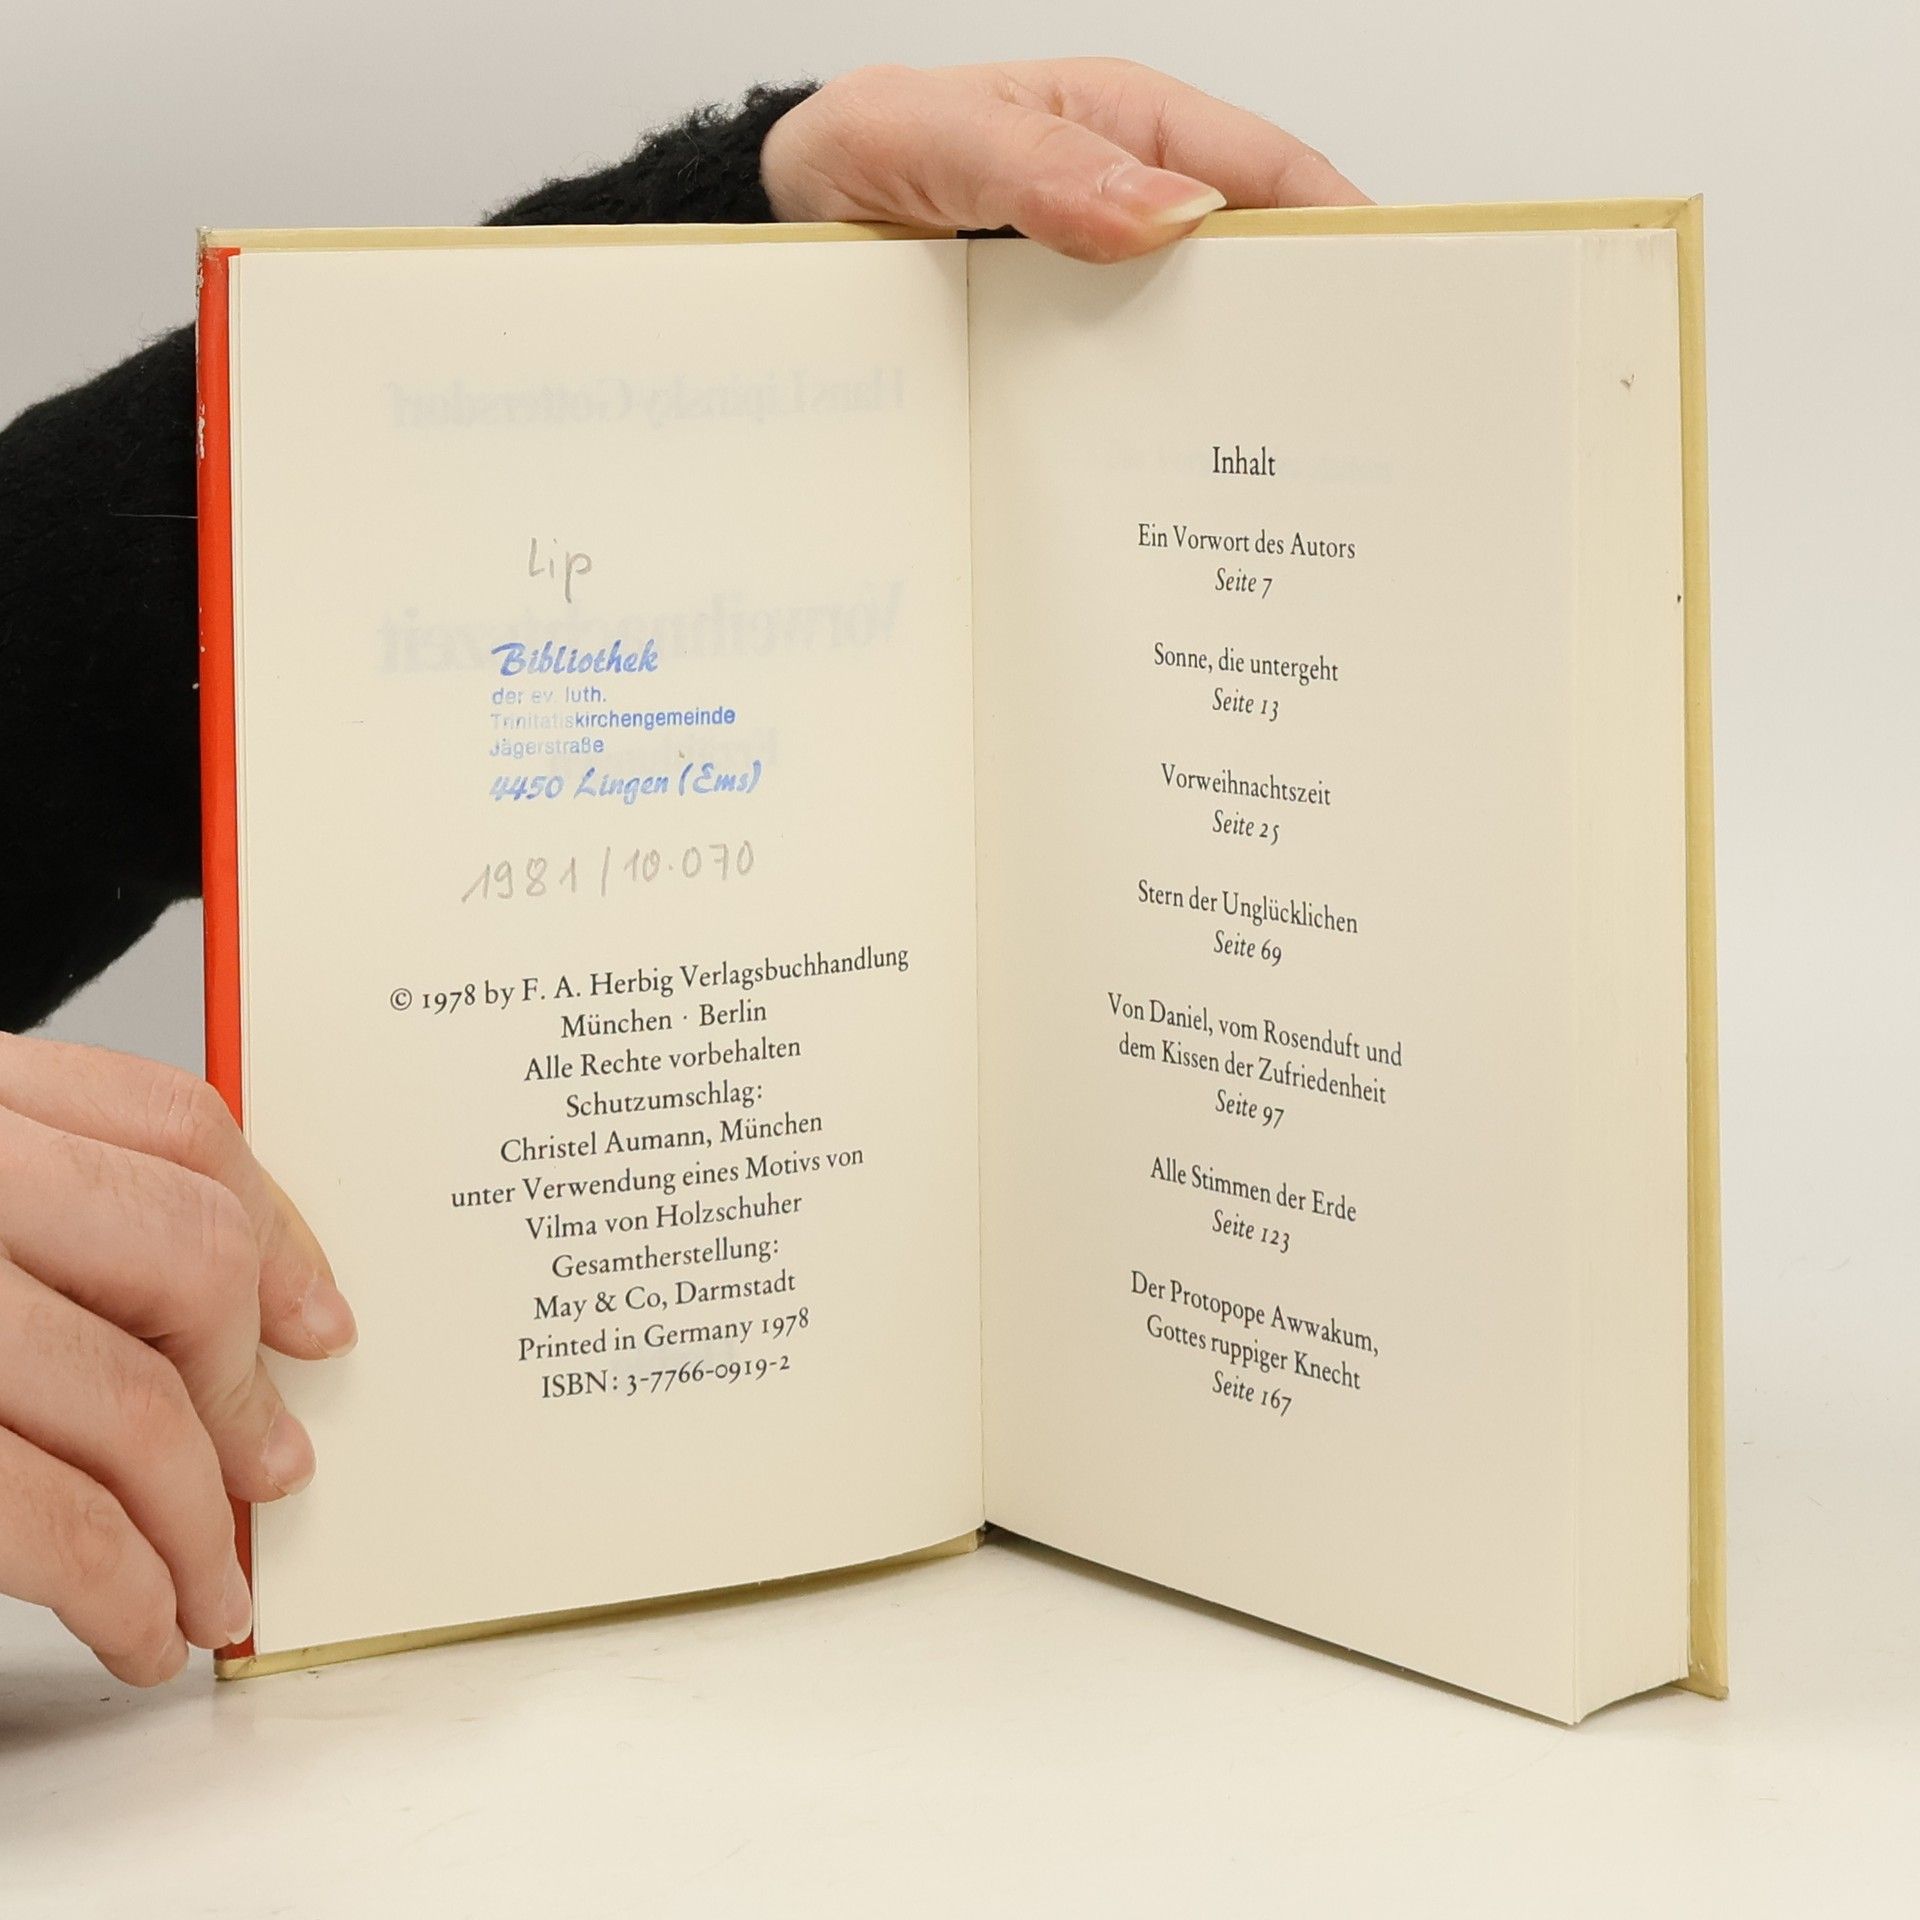 Lip
Bibliothek
der ev. luth.
Trinitatiskirchengemeinde
Jägerstraße
4450 Lingen (Ems)
1981/10.070
© 1978 by F. A. Herbig Verlagsbuchhandlung
München · Berlin
Alle Rechte vorbehalten
Schutzumschlag:
Christel Aumann, München
unter Verwendung eines Motivs von
Vilma von Holzschuher
Gesamtherstellung:
May & Co, Darmstadt
Printed in Germany 1978
ISBN: 3-7766-0919-2
Inhalt
Ein Vorwort des Autors
Seite 7
Sonne, die untergeht
Seite 13
Vorweihnachtszeit
Seite 25
Stern der Unglücklichen
Seite 69
Von Daniel, vom Rosenduft und
dem Kissen der Zufriedenheit
Seite 97
Alle Stimmen der Erde
Seite 123
Der Protopope Awwakum,
Gottes ruppiger Knecht
Seite 167